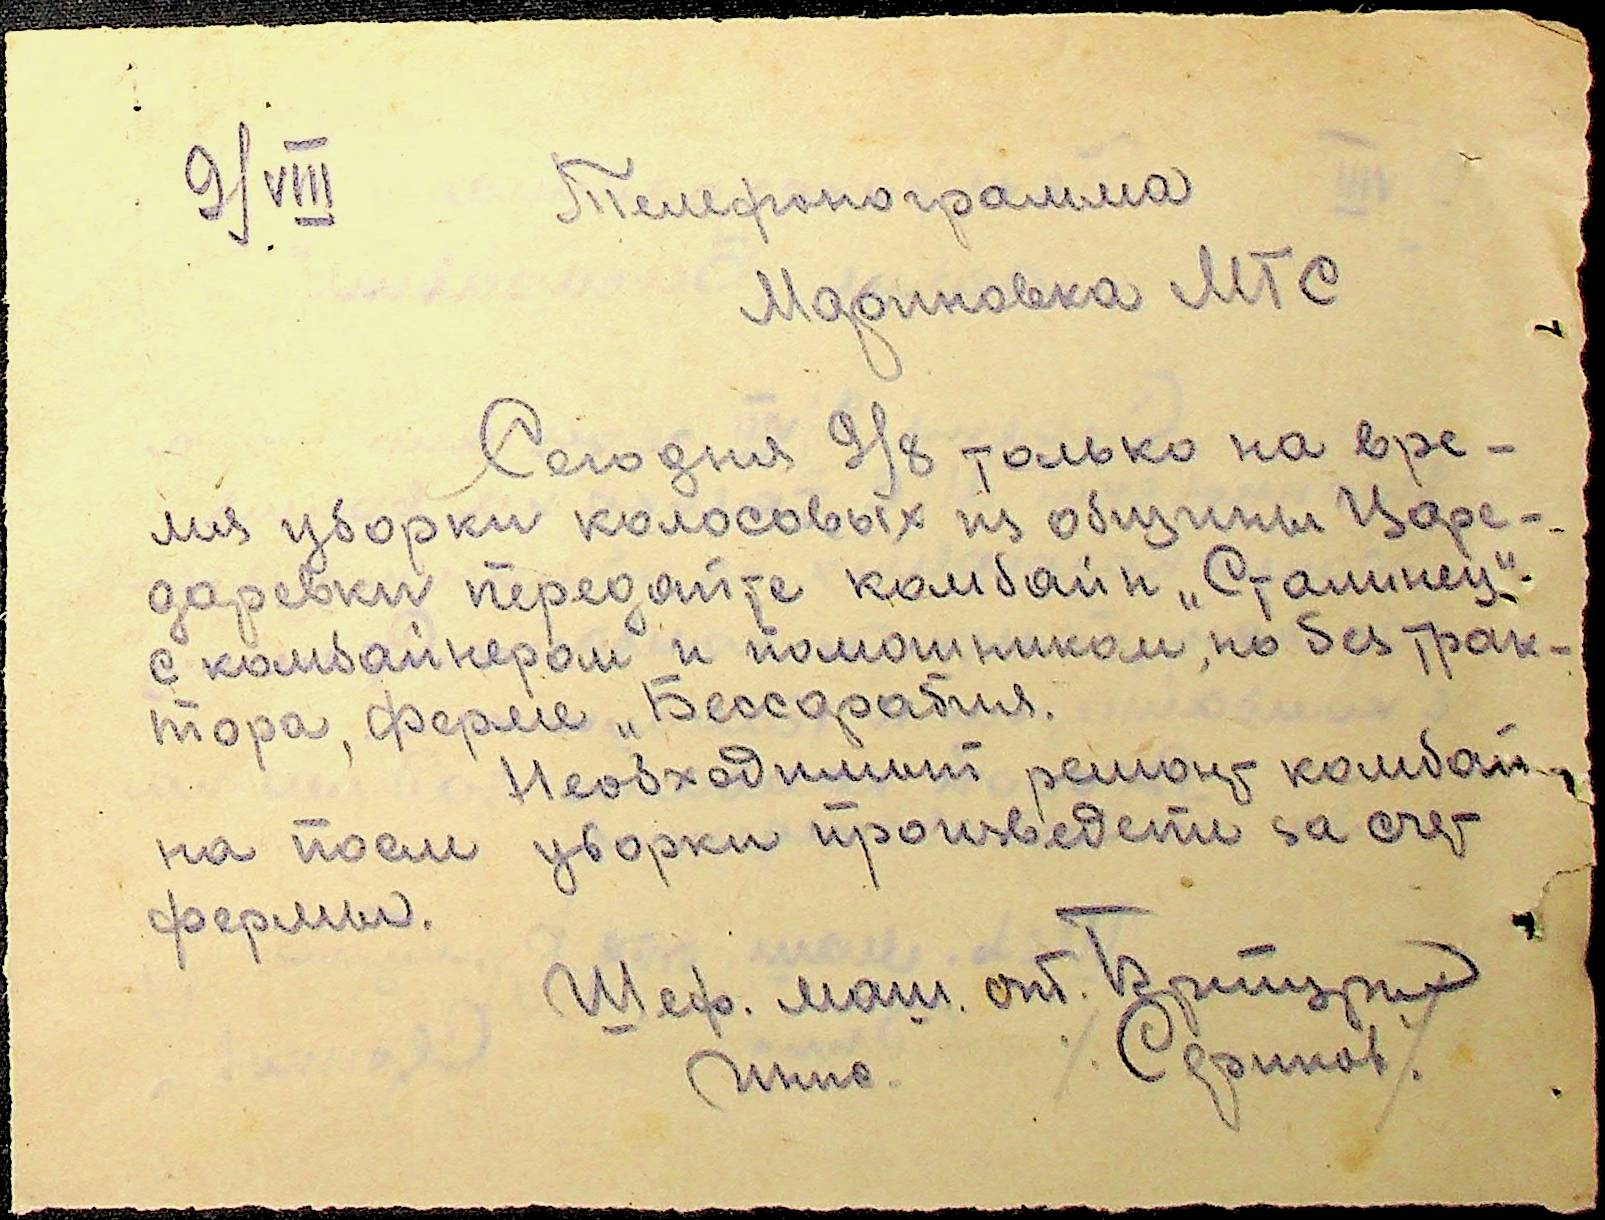 9/VIII Телефонограмма
Мариновка МТС
Сегодня 9/8 только на вре-
мя уборки колосовых из общины Царе-
даревки передайте комбайн „Сталинец“
с комбайнером и помошником, но без трак-
тора, ферме „Бессарабия.
Необходимый ремонт комбай
на после уборки произведети за счет
фермы.
Шеф. маш. отд.
Инж. /. /.